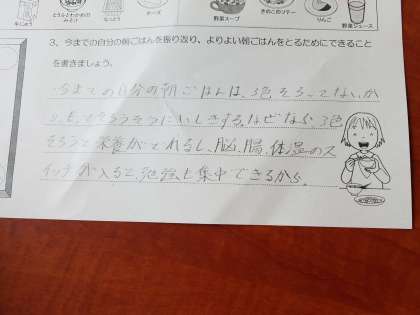 とうふとわかめの
みそしる
なっとう
チーズ
野菜スープ
きのこのソテー
りんご
野菜ジュース
3、今までの自分の朝ごはんを振り返り、よりよい朝ごはんをとるためにできること
を書きましょう。
今までの自分の朝ごはんは、3色そろってない、か
らもっとそろうようにいしきする。なぜなら、3色
そろうと栄養がとれるし、脳、腸、体温のス
イッチが入ると、勉強も集中できるから。